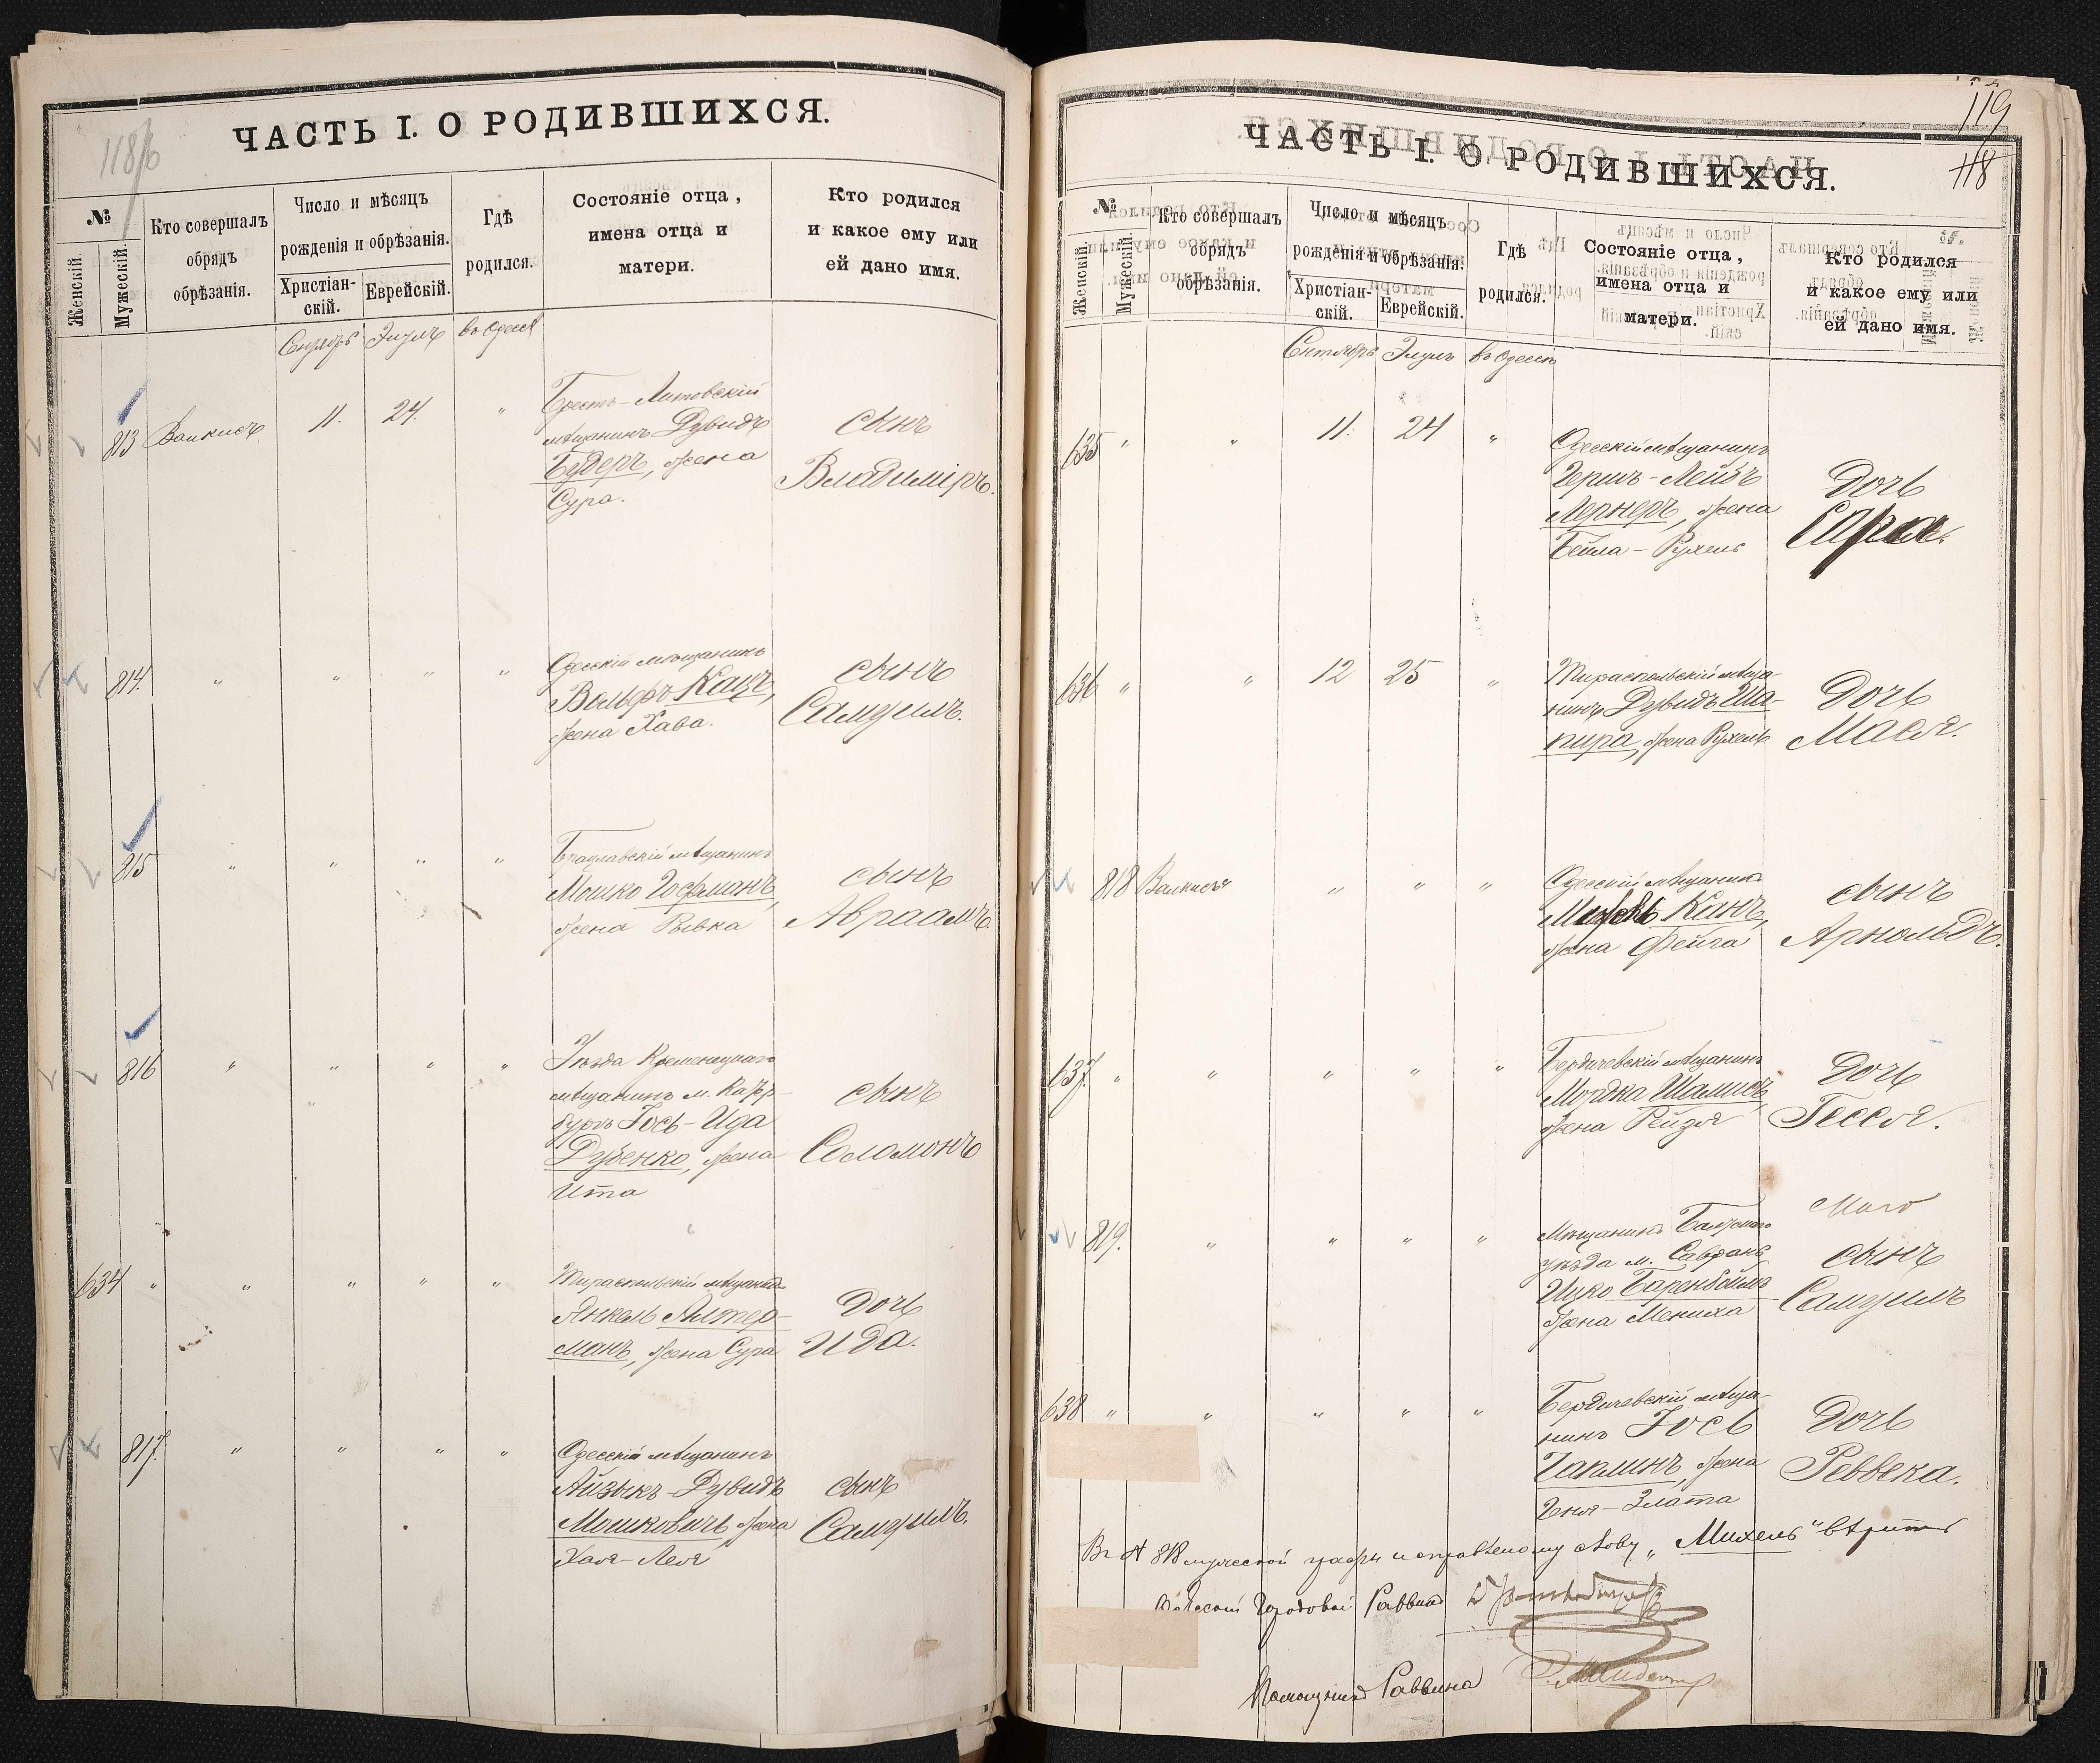 118/б
ЧАСТЬ I. О РОДИВШИХСЯ.
№
Женскій.
Мужескій.
Кто совершалъ
обрядъ
обрѣзанія.
Число и мѣсяцъ
рожденія и обрѣзанія.
Христіан-
скій.
Еврейскій.
Гдѣ
родился.
Состояніе отца,
имена отца и
матери.
Кто родился
и какое ему или
ей дано имя.
Элулъ въ Одессѣ
813 11. 24. "
Брестъ-Литовскій
мѣщанинъ Дувидъ
Будеръ, жена
Сура.
сынъ
Владиміръ.
814. " " " "
Одесскій мѣщанинъ
Вольфъ Кацъ,
жена Хава.
сынъ
Самуилъ.
815 " " " "
Брацлавскій мѣщанинъ
Мошко Гофманъ,
жена Ривка
сынъ
Авраамъ.
816 " " " "
Уѣзда Кременецкаго
мѣщанинъ м.
Іось-Ида
Дубенко, жена
Ита
сынъ
Соломонъ
634 " " " " "
Тираспольскій мѣщанинъ
Янкель Альтер-
манъ, жена Сура
Дочь
Ида.
817. " " " "
Одесскій мѣщанинъ
Айзыкъ-Дувидъ
Мошковичъ, жена
Хая-Лея
сынъ
Самуилъ.
119
118
ЧАСТЬ I. О РОДИВШИХСЯ.
№
Женскій.
Мужескій.
Кто совершалъ
обрядъ
обрѣзанія.
Число и мѣсяцъ
рожденія и обрѣзанія.
Христіан-
скій.
Еврейскій.
Гдѣ
родился.
Состояніе отца,
имена отца и
матери.
Кто родился
и какое ему или
ей дано имя.
Сентябрь Элулъ въ Одессѣ
635 " " 11. 24 "
Одесскій мѣщанинъ
Гершъ-Лейбъ
Лернеръ, жена
Бейла-Рухель
Дочь
Сара.
636 " " 12 25 "
Тираспольскій мѣща-
нинъ Дувидъ Ша-
пира, жена Рухель
Дочь
Мася.
818 " " "
Одесскій мѣщанинъ
Михель Канъ,
жена Фейга
сынъ
Арнольдъ.
637. " " " " "
Бердичевскій мѣщанинъ
Мордка Шамисъ,
жена Рейзя
Дочь
Гесся.
819. " " " "
Мѣщанинъ Балтскаго
уѣзда м. Саврань
Ицко Баренбоймъ
жена Мениха
сынъ
Самуилъ
638 " " " " "
Бердичевскій мѣща-
нинъ Іось
Чаплинъ, жена
Геня-Злата
Дочь
Реввека.
Въ № 818 мужеской графы исправленному слову „Михель" вѣрить
Одесскій Городовой Раввинъ
Помощникъ Раввина